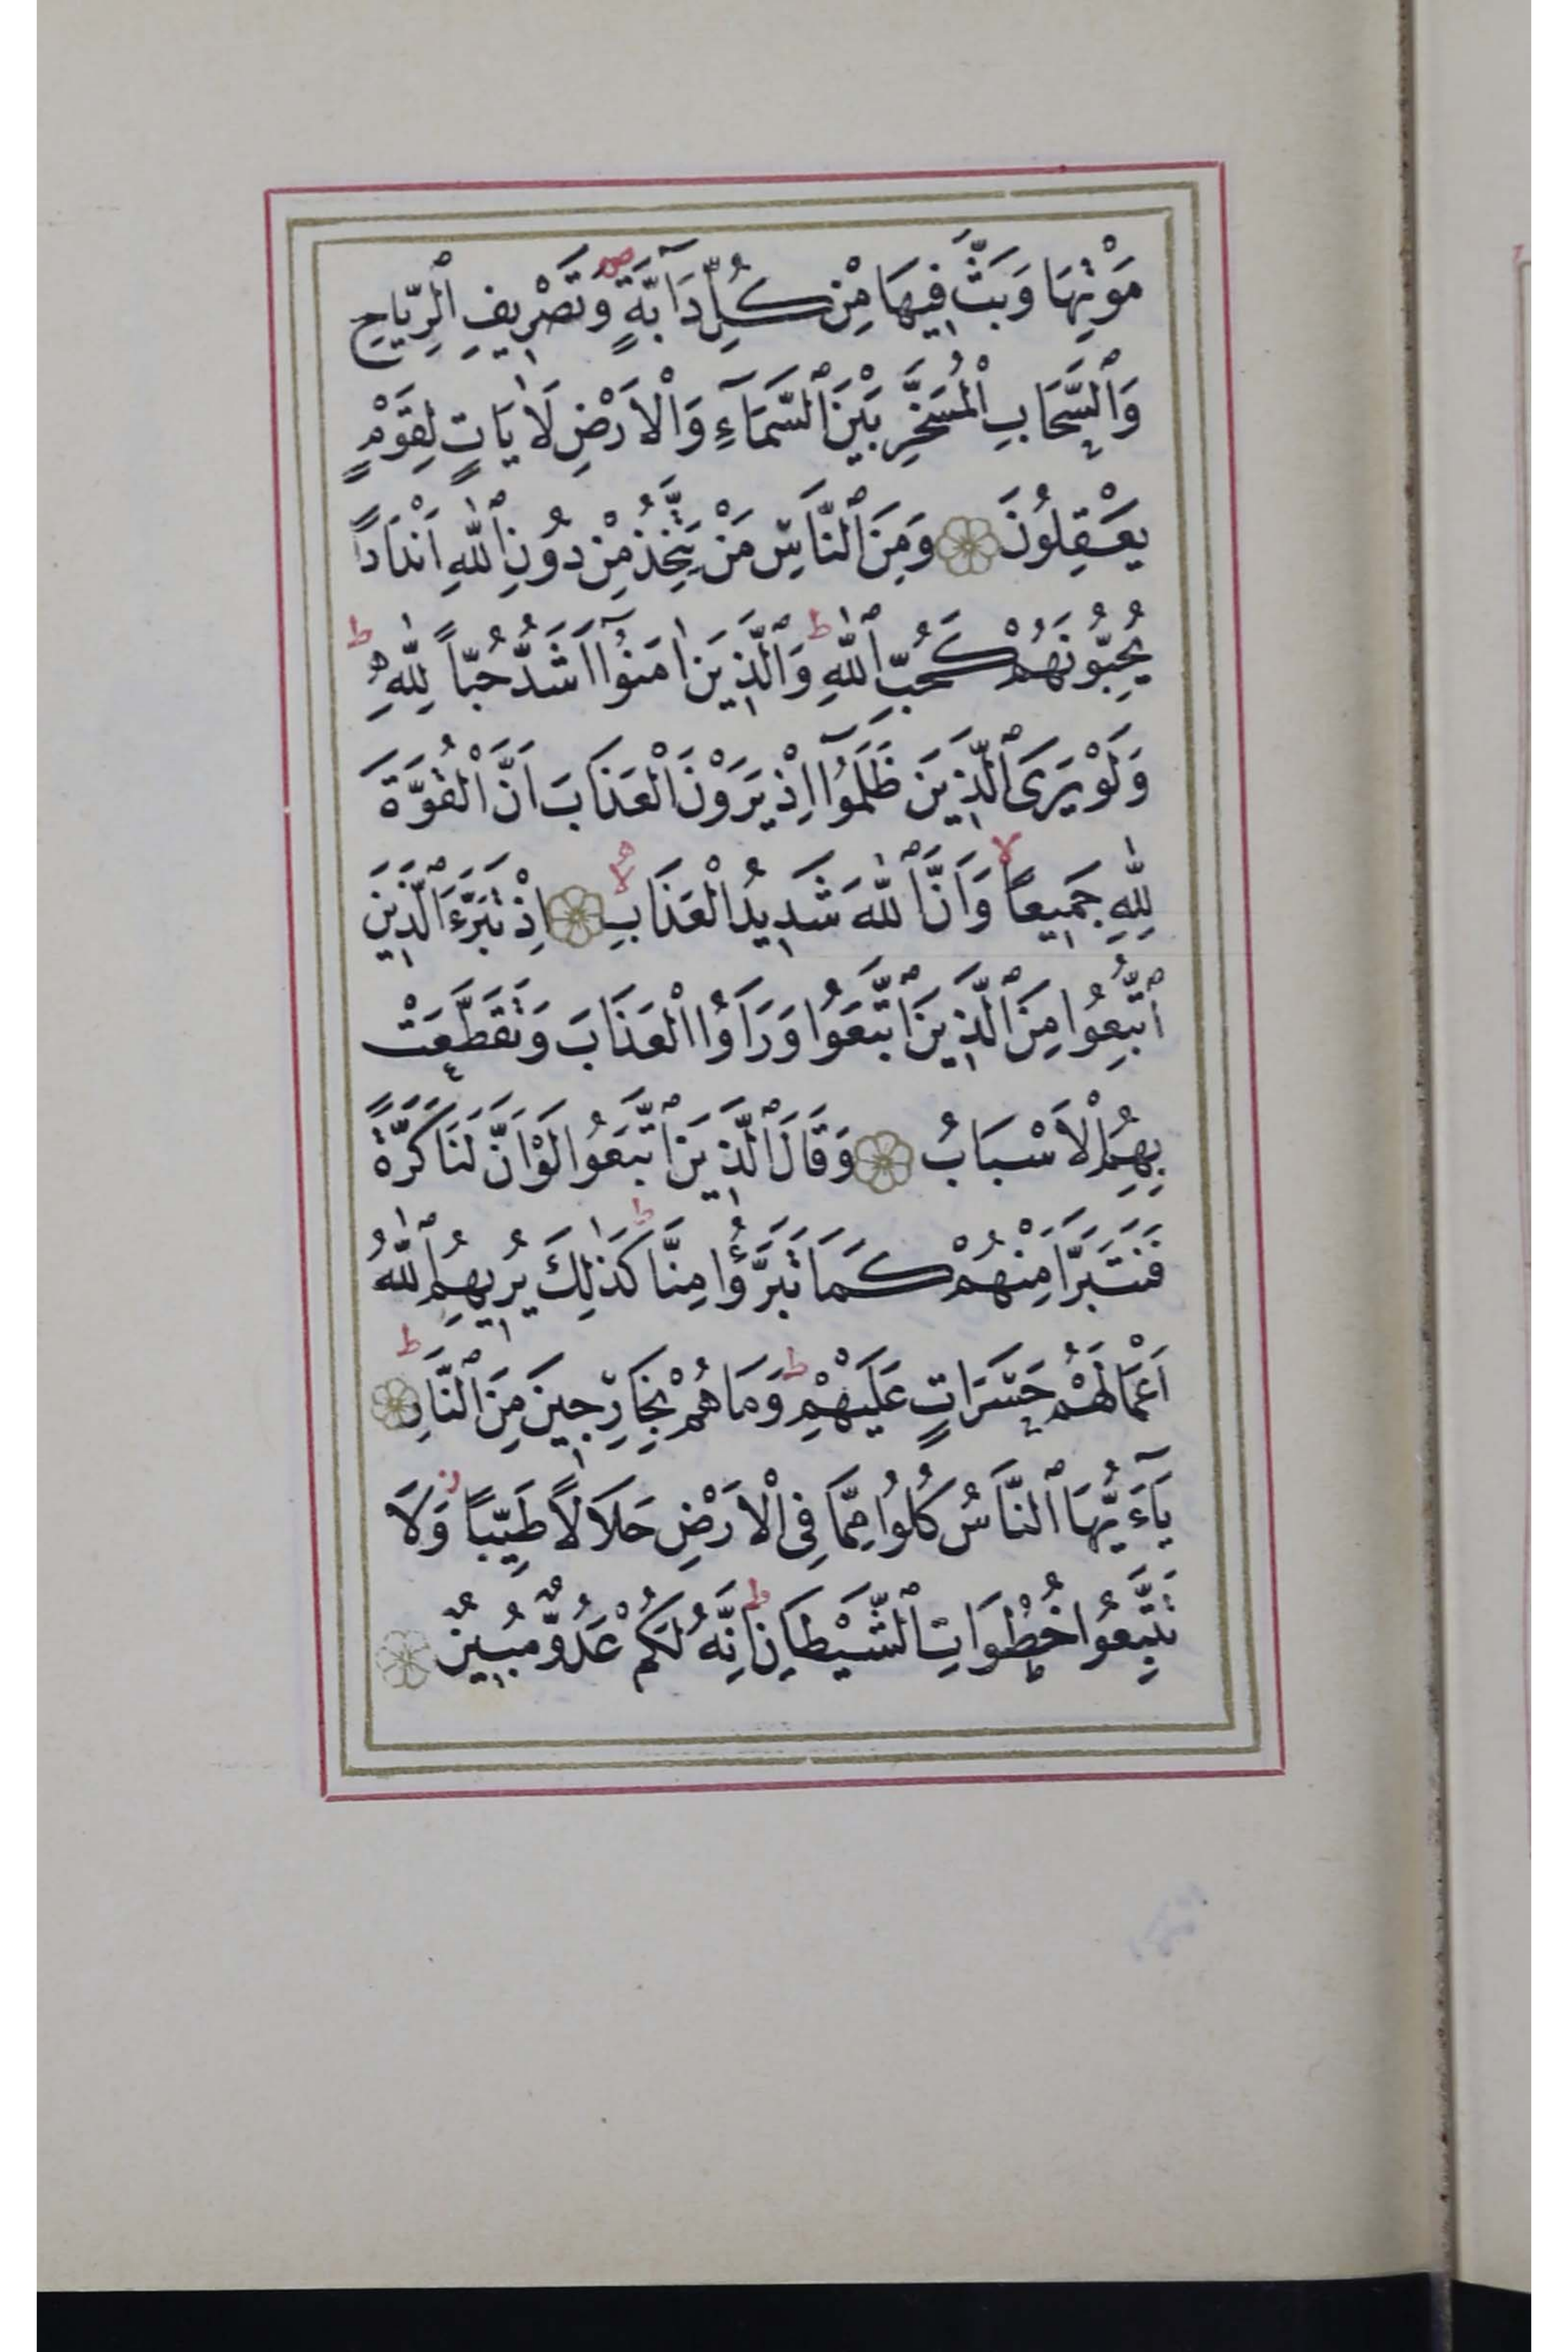 مَوْتِهَا وَبَثَّ فِيهَا مِنْ كُلِّ دَآبَّةٍ ۖ وَتَصْرِيفِ ٱلرِّيَاحِ
وَٱلسَّحَابِ ٱلْمُسَخَّرِ بَيْنَ ٱلسَّمَآءِ وَٱلْاَرْضِ لَاٰيَاتٍ لِقَوْمٍ
يَعْقِلُونَ ۝ وَمِنَ ٱلنَّاسِ مَنْ يَتَّخِذُ مِنْ دُونِ ٱللّٰهِ اَنْدَادًا
يُحِبُّونَهُمْ كَحُبِّ ٱللّٰهِ ؕ وَٱلَّذِينَ اٰمَنُوٓا اَشَدُّ حُبّاً لِلّٰهِ ؕ
وَلَوْ يَرَى ٱلَّذِينَ ظَلَمُوٓا اِذْ يَرَوْنَ ٱلْعَذَابَ اَنَّ ٱلْقُوَّةَ
لِلّٰهِ جَمِيعاً ۙ وَاَنَّ ٱللّٰهَ شَدِيدُ ٱلْعَذَابِ ۝ اِذْ تَبَرَّءَ ٱلَّذِينَ
ٱتُّبِعُوا مِنَ ٱلَّذِينَ ٱتَّبَعُوا وَرَاَوُا ٱلْعَذَابَ وَتَقَطَّعَتْ
بِهِمُ ٱلْاَسْبَابُ ۝ وَقَالَ ٱلَّذِينَ ٱتَّبَعُوا لَوْ اَنَّ لَنَا كَرَّةً
فَنَتَبَرَّاَ مِنْهُمْ كَمَا تَبَرَّؤُا مِنَّا ؕ كَذٰلِكَ يُرِيهِمُ ٱللّٰهُ
اَعْمَالَهُمْ حَسَرَاتٍ عَلَيْهِمْ ؕ وَمَا هُمْ بِخَارِجِينَ مِنَ ٱلنَّارِ ؕ ۝
يَآءَيُّهَا ٱلنَّاسُ كُلُوا مِمَّا فِى ٱلْاَرْضِ حَلَالاً طَيِّباً ز وَلَا
تَتَّبِعُوا خُطُوَاتِ ٱلشَّيْطَانِ ؕ اِنَّهُ لَكُمْ عَدُوٌّ مُبِينٌ ۝